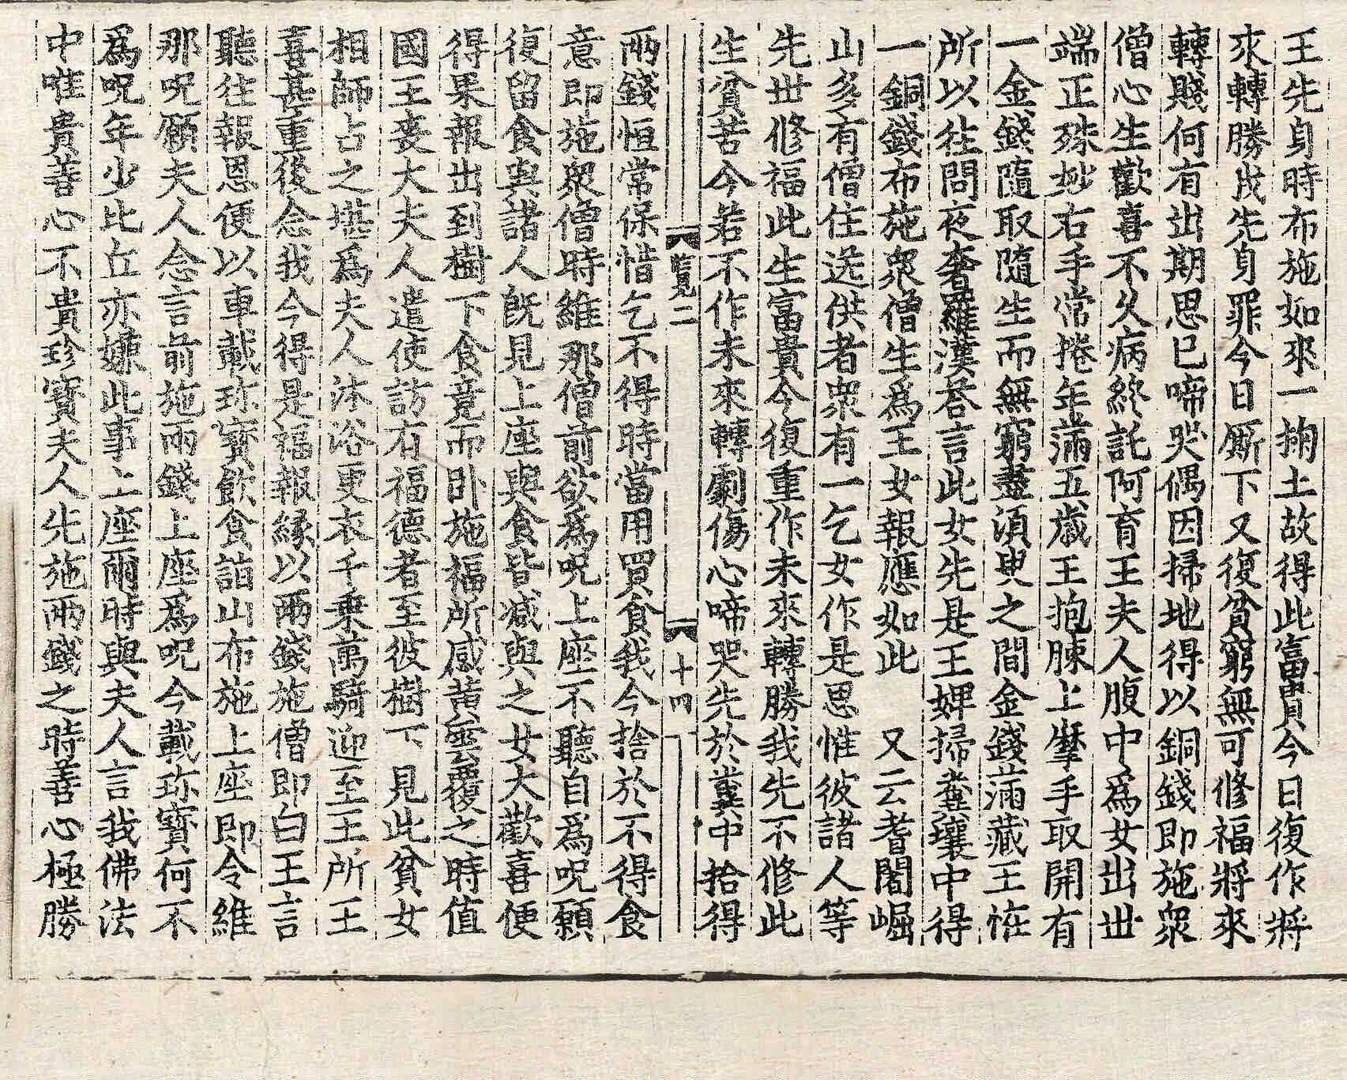 王先身時布施如來一掬土故得此富貴今日復作將
來轉勝我先身罪今日厮下又復貧窮無可修福將來
轉賤何有出期思已啼哭偶因掃地得以銅錢即施衆
僧心生歡喜不久病終託阿育王夫人腹中爲女出丗
端正殊妙右手常捲年滿五歳王抱膝上摩手取開有
一金錢隨取隨生而無窮盡湏臾之間金錢滿藏王恠
所以往問夜奢羅漢荅言此女先是王婢掃糞壤中得
一銅錢布施衆僧生爲王女報應如此　又云耆闍崛
山多有僧住送供者衆有一乞女作是思惟彼諸人等
先丗修福此生富貴今復重作未來轉勝我先不修此
生貧苦今若不作未來轉劇傷心啼哭先於糞中拾得
二　十四
兩錢恒常保惜乞不得時當用買食我今捨於不得食
意即施衆僧時維那僧前欲爲呪上座不聽自爲呪願
復留食與諸人旣見上座與食皆减與之女大歡喜便
得果報出到樹下食竟而卧施福所感黄雲覆之時值
國王喪大夫人遣使訪有福德者至彼樹下見此貧女
相師占之堪爲夫人沐浴更衣千乗萬騎迎至王所王
喜甚重後念我今得是福報縁以兩錢施僧即白王言
聽往報恩便以車載珎寳飲食詣山布施上座即令維
那呪願夫人念言前施兩錢上座爲呪今載珎寳何不
爲呪年少比丘亦嫌此事上座爾時與夫人言我佛法
中唯貴善心不貴珍寳夫人先施兩錢之時善心極勝